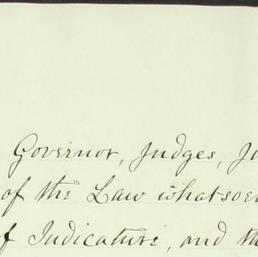 Governor, Judges, Ju
of the Law whatsoev
f Judicature, and th